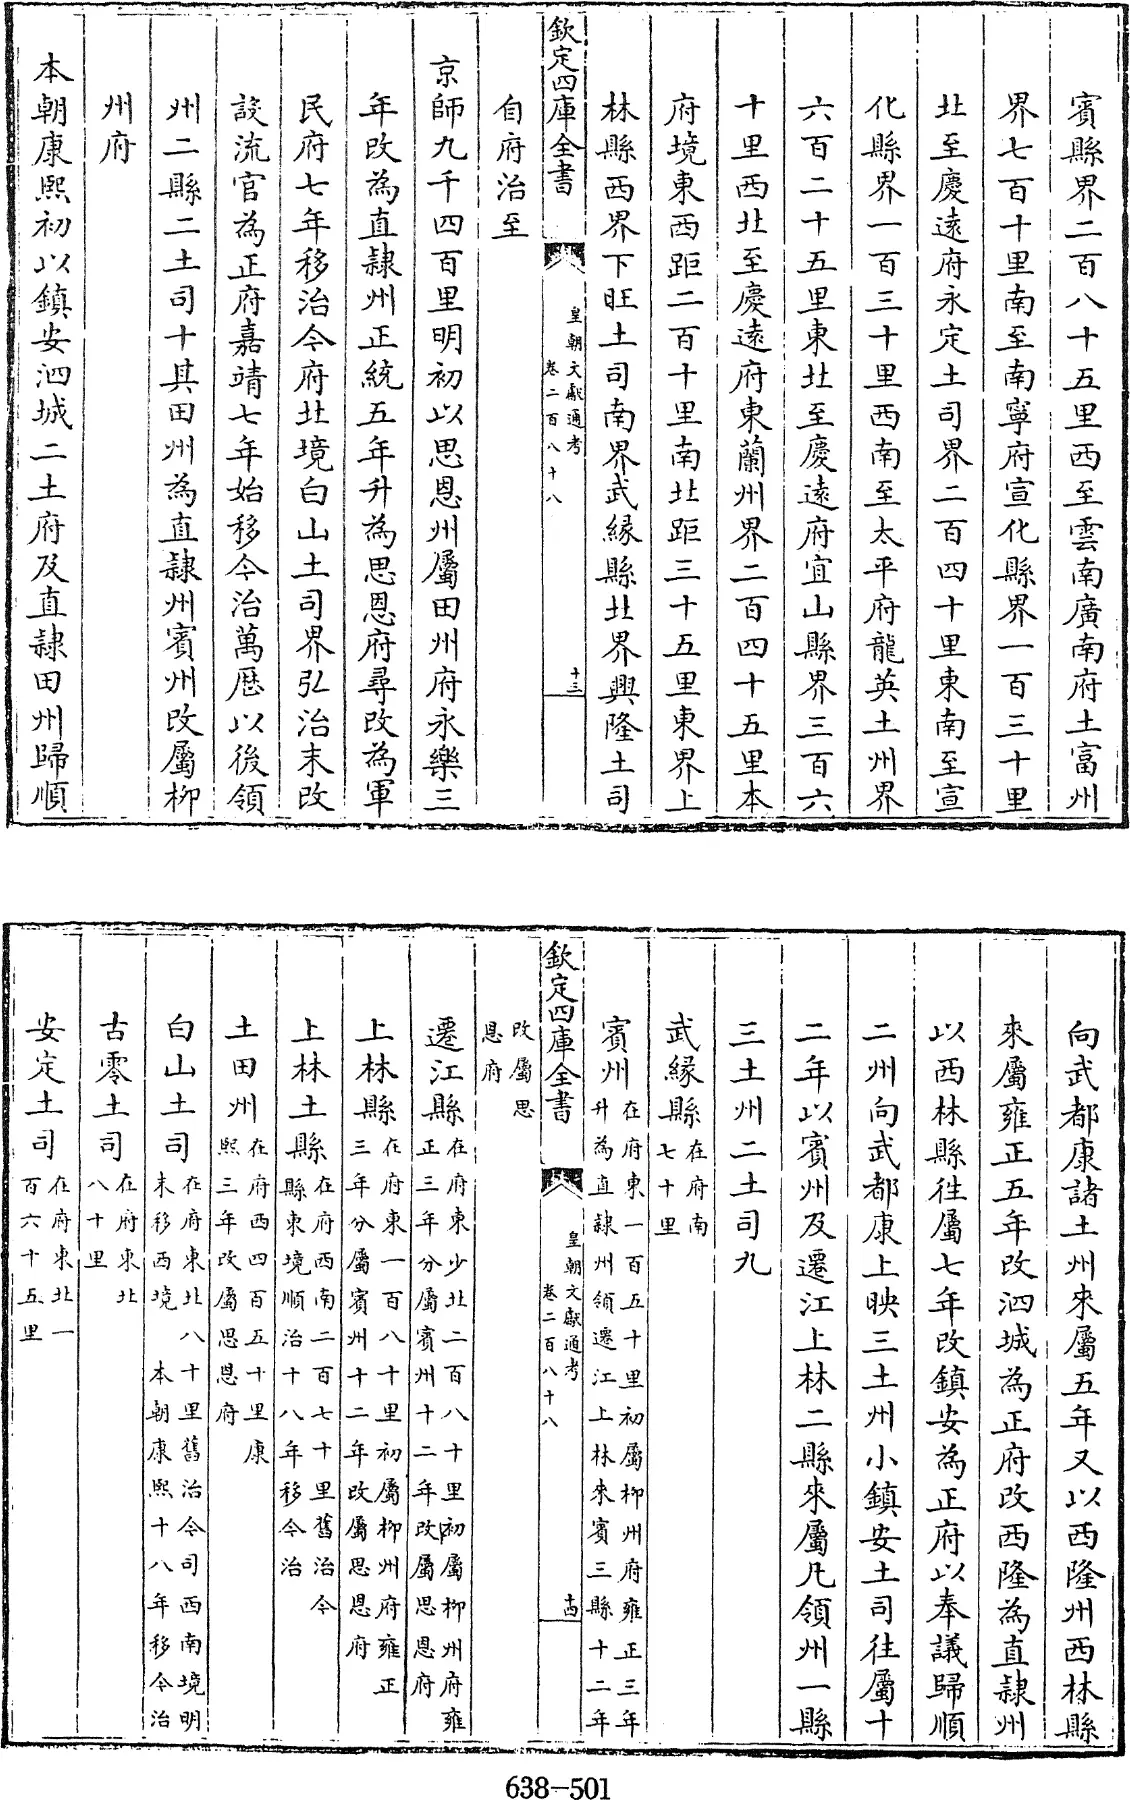 賓縣界二百八十五里西至雲南廣南府土富州
界七百十里南至南寧府宣化縣界一百三十里
北至慶遠府永定土司界二百四十里東南至宣
化縣界一百三十里西南至太平府龍英土州界
六百二十五里東北至慶遠府宜山縣界三百六
十里西北至慶遠府東蘭州界二百四十五里本
府境東西距二百十里南北距三十五里東界上
林縣西界下旺土司南界武緣縣北界興隆土司
欽定四庫全書
皇朝文獻通考
卷二百八十八
十三
自府治至
京師九千四百里明初以思恩州屬田州府永樂三
年改為直隸州正統五年升為思恩府尋改為軍
民府七年移治今府北境白山土司界弘治末改
設流官為正府嘉靖七年始移今治萬厯以後領
州二縣二土司十其田州為直隸州賓州改屬柳
州府
本朝康熙初以鎮安泗城二土府及直隸田州歸順
向武都康諸土州來屬五年又以西隆州西林縣
來屬雍正五年改泗城為正府改西隆為直隸州
以西林縣徃屬七年改鎮安為正府以奉議歸順
二州向武都康上映三土州小鎮安土司往屬十
二年以賓州及遷江上林二縣來屬凡領州一縣
三土州二土司九
武緣縣在府南
七十里
賓州在府東一百五十里初屬柳州府雍正三年
升為直隸州領遷江上林來賓三縣十二年
欽定四庫全書
皇朝文獻通考
卷二百八十八
十四
改屬思
恩府
遷江縣在府東少北二百八十里初屬柳州府雍
正三年分屬賓州十二年改屬思恩府
上林縣在府東一百八十里初屬柳州府雍正
三年分屬賓州十二年改屬思恩府
上林土縣在府西南二百七十里舊治今
縣東境順治十八年移今治
土田州在府西四百五十里康
熙三年改屬思恩府
白山土司在府東北八十里舊治今司西南境明
末移西境本朝康熙十八年移今治
古零土司在府東北
八十里
安定土司在府東北一
百六十五里
638-501